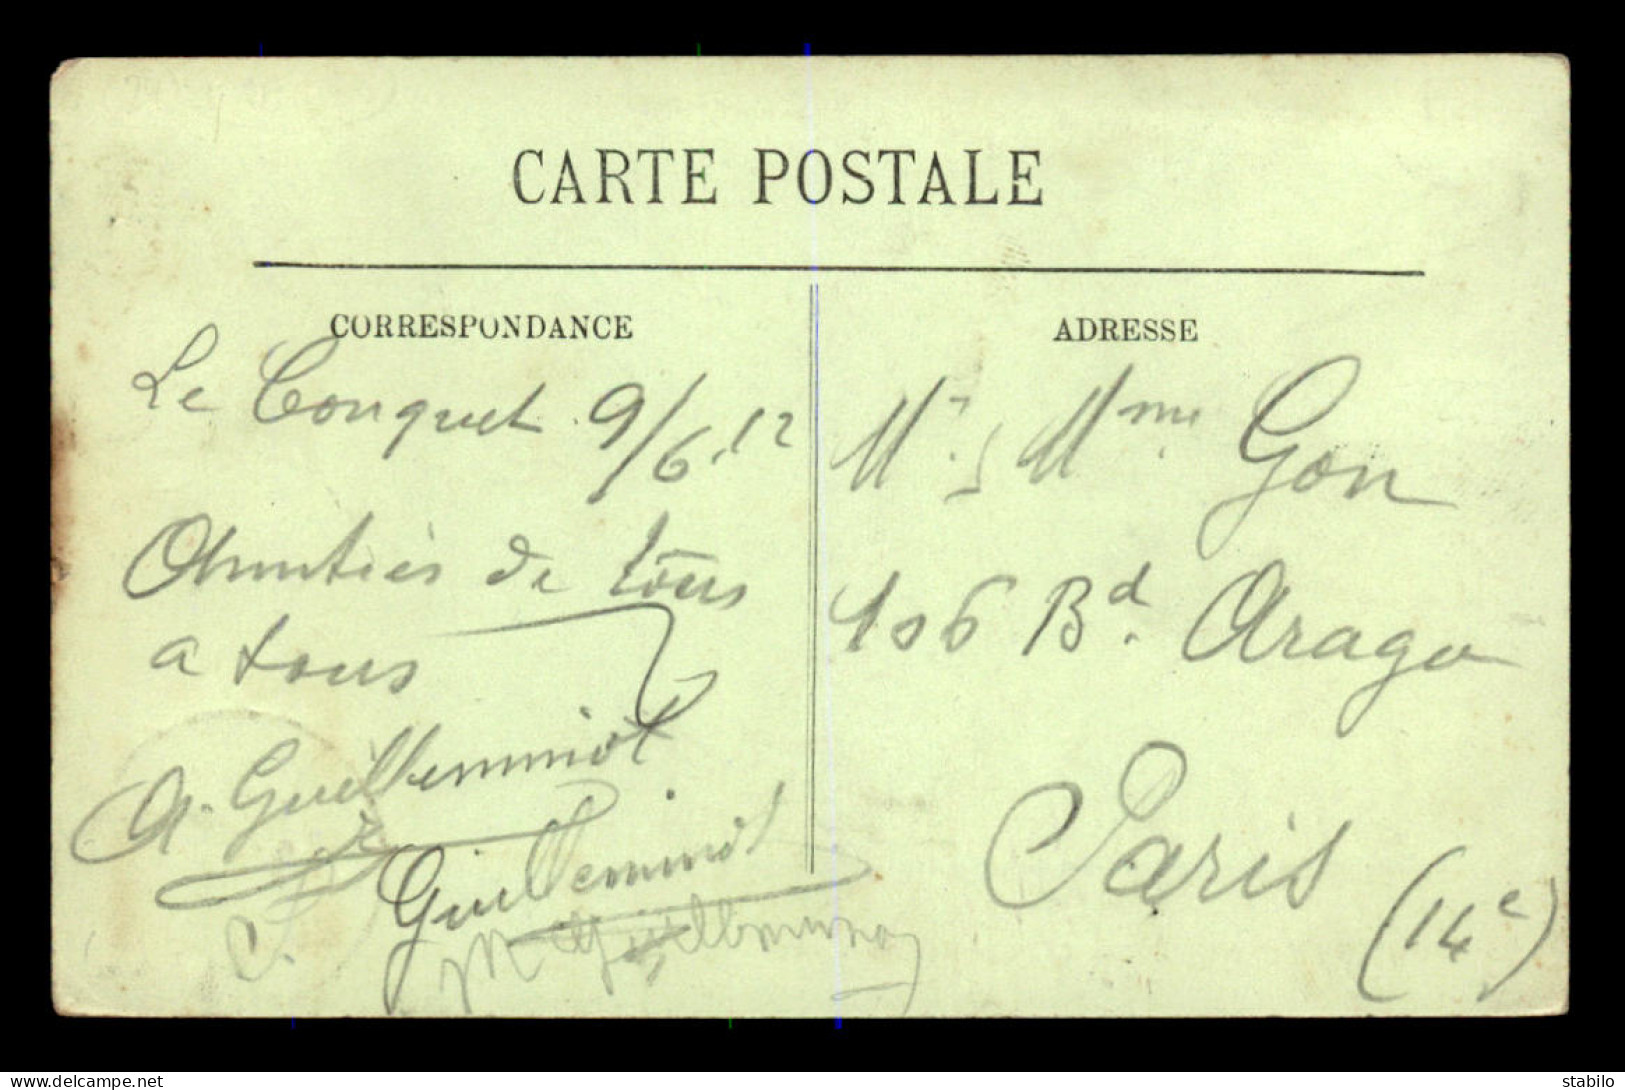 CARTE POSTALE
CORRESPONDANCE
Le Conquet 9/6.12
Amitiés de tous
a tous
A. Guillemminot
Guilleminot
ADRESSE
Mr & Mme Gon
106 Bd. Arago
Paris
(14e)
www.delcampe.net
stabilo